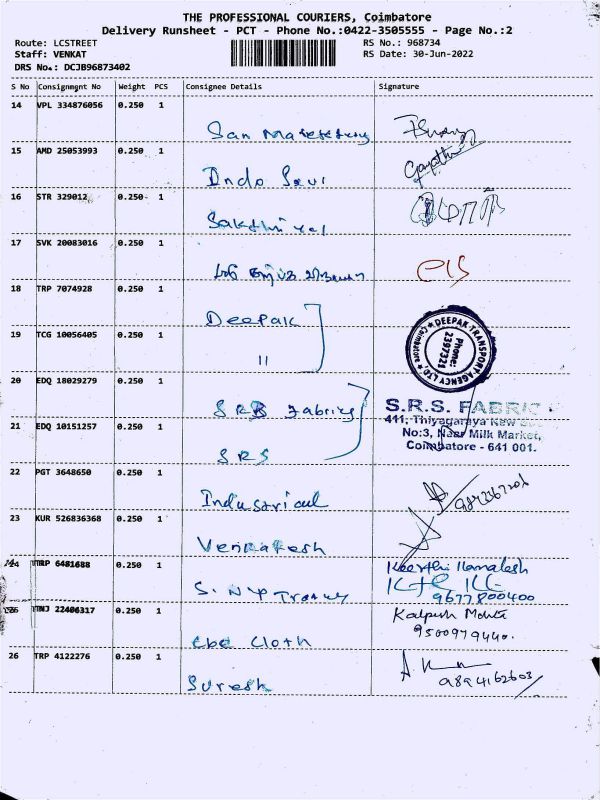 THE PROFESSIONAL COURIERS, Coimbatore
Delivery Runsheet - PCT - Phone No.:0422-3505555 - Page No.:2
Route: LCSTREET RS No.: 968734
Staff: VENKAT RS Date: 30-Jun-2022
DRS No.: DCJB96873402
S No Consignmgnt No Weight PCS Consignee Details Signature
14 VPL 334876056 0.250 1
San
15 AMD 25053993 0.250 1
Indo
16 STR 329012 0.250 1
Sakthi
17 SVK 20083016 0.250 1
18 TRP 7074928 0.250 1
Deepak
19 TCG 10056405 0.250 1
11
DEEPAK TRANSPORT AGENCY LTD
Coimbatore
Phone:
2397321
20 EDQ 18029279 0.250 1
SRS Fabrics
S.R.S. FABRIC
411, Thiyagaraya New
No:3, Near Milk Market,
Coimbatore - 641 001.
21 EDQ 10151257 0.250 1
SRS
22 PGT 3648650 0.250 1
Industrial
23 KUR 526836368 0.250 1
Venkatesh
24 TRP 6481688 0.250 1
S.
Keerthi Kamalesh
9677800400
TNJ 22406317 0.250 1
Cloth
Kalpesh Mehta
9500979440.
26 TRP 4122276 0.250 1
Suresh
9894162603